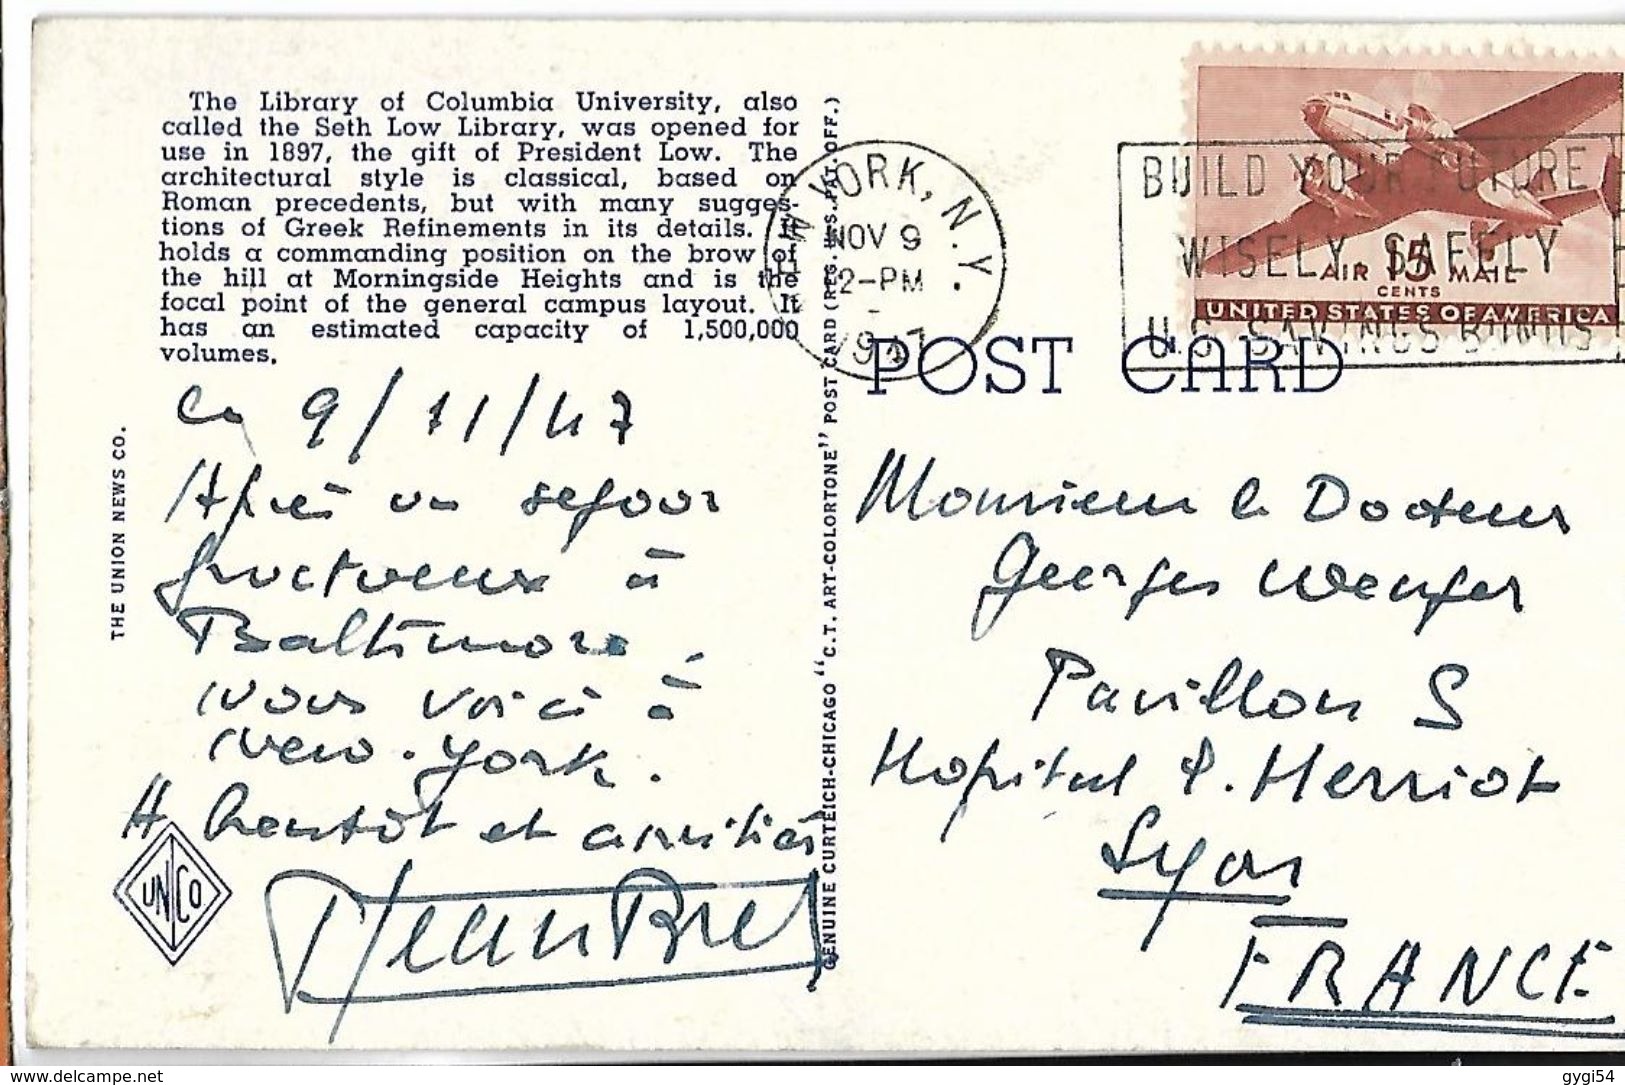 The Library of Columbia University, also
called the Seth Low Library, was opened for
use in 1897, the gift of President Low. The
architectural style is classical, based on
Roman precedents, but with many sugges-
tions of Greek Refinements in its details. It
holds a commanding position on the brow of
the hill at Morningside Heights and is the
focal point of the general campus layout. It
has an estimated capacity of 1,500,000
volumes.
THE UNION NEWS CO.
Le 9/11/47
Après un sejour
fructueux à
Baltimore,
nous voici à
New-York.
A bientôt et amitiés
Jean Bret
UN CO
GENUINE CURTEICH-CHICAGO "C.T. ART-COLORTONE" POST CARD (REG. U.S. PAT. OFF.)
W YORK, N.Y.
NOV 9
2-PM
1947
BUILD YOUR FUTURE
WISELY SAFELY
U.S. SAVINGS BONDS
AIR 15 MAIL
CENTS
UNITED STATES OF AMERICA
POST CARD
Monsieur le Docteur
Georges Wenger
Pavillon S
Hopital E. Herriot
Lyon
FRANCE
www.delcampe.net
gygi54